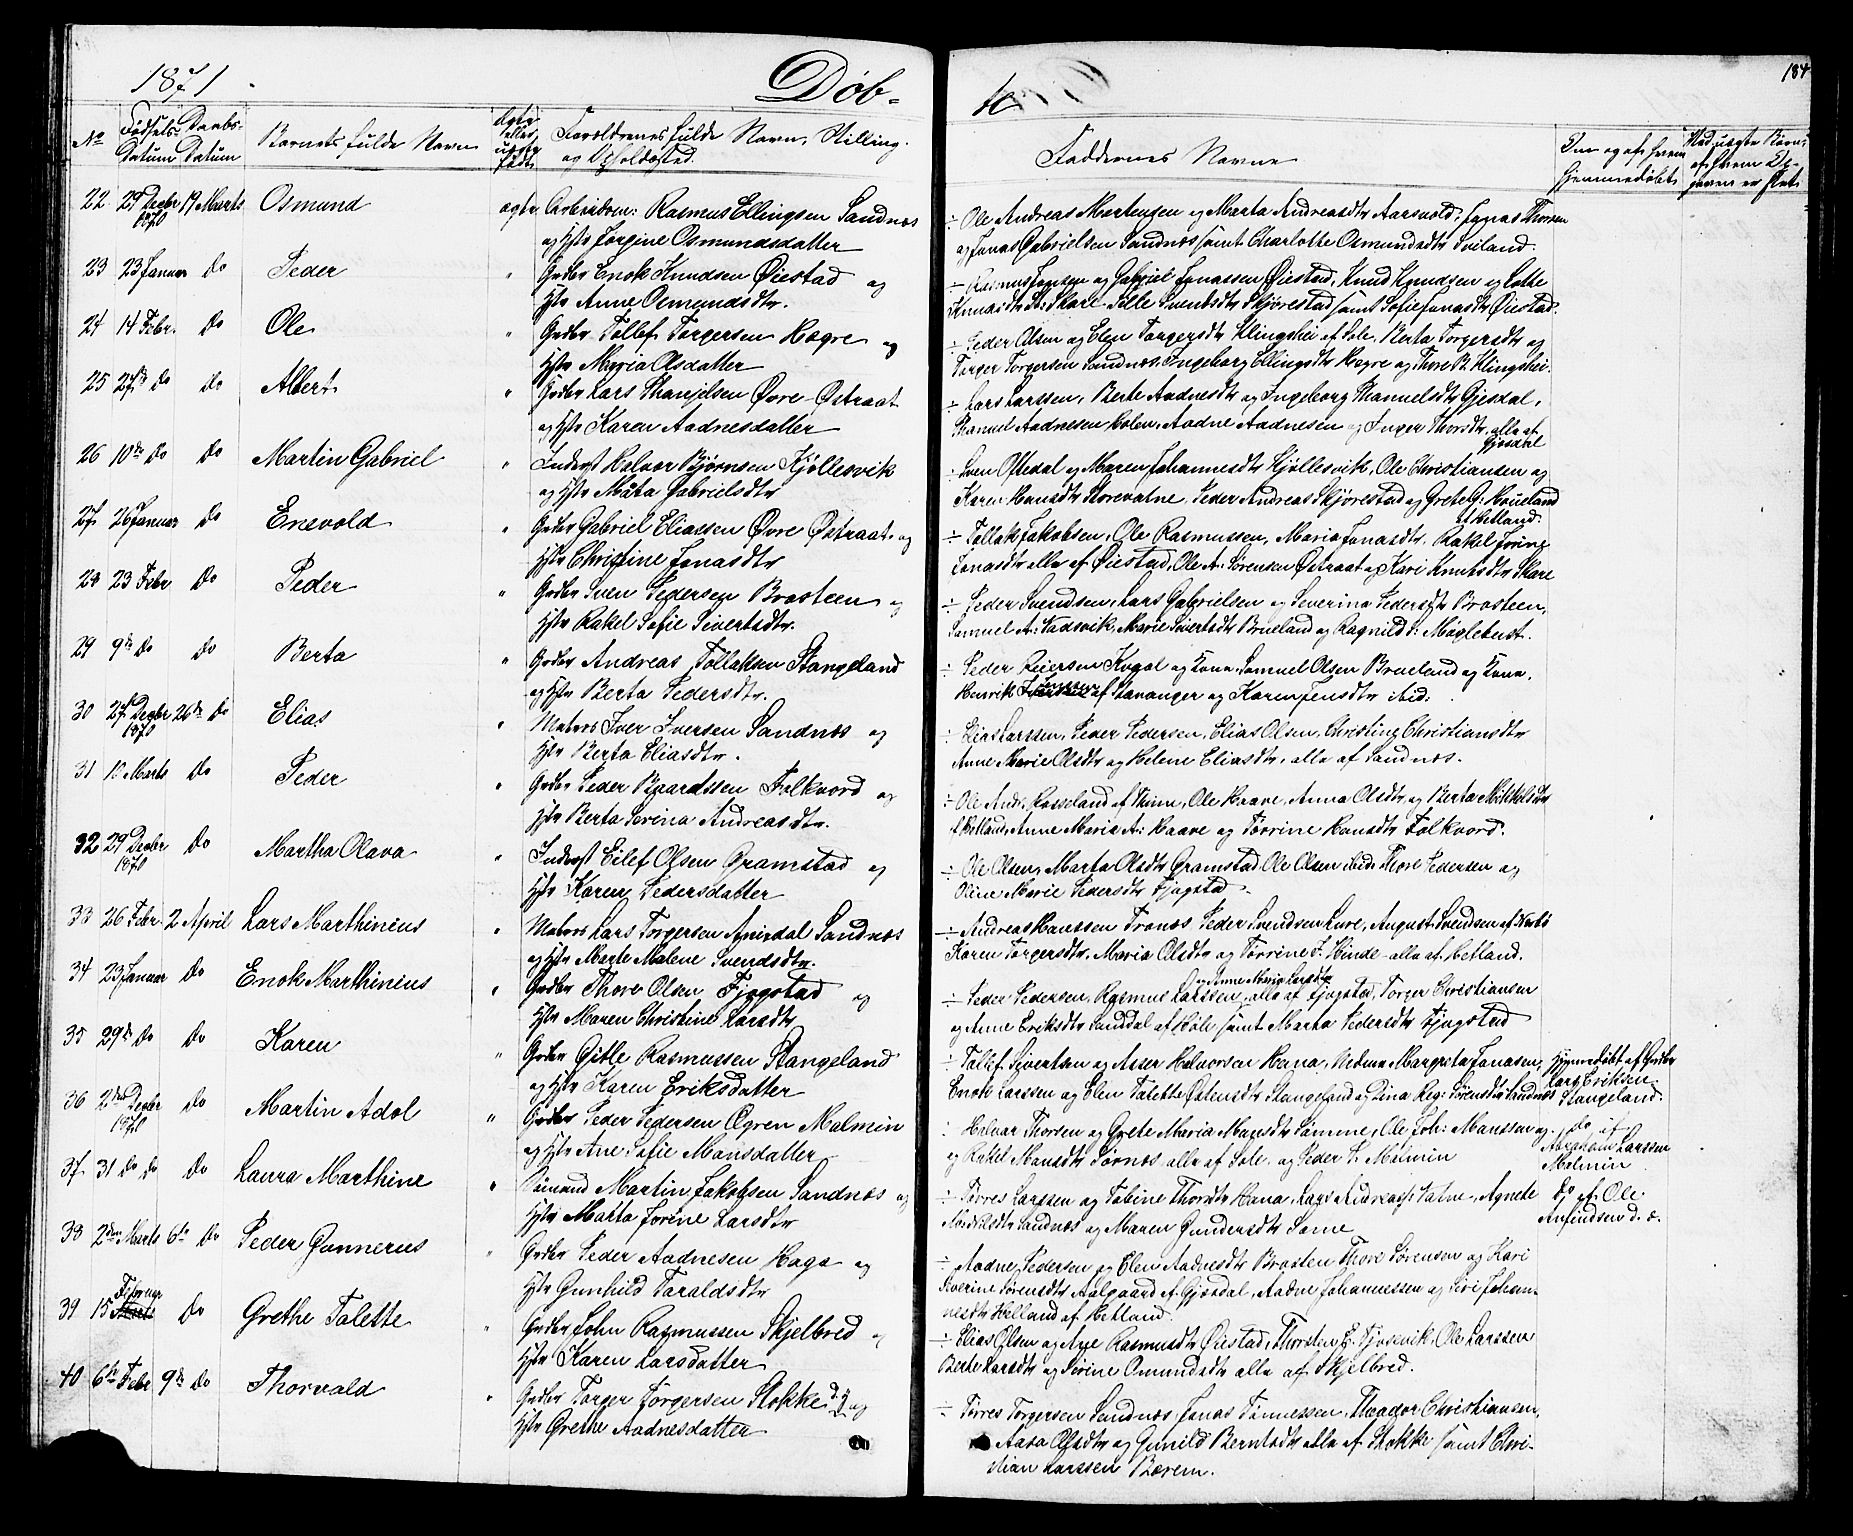 1871
Døb-
te
184
No
Fødsels-
Datum
Daabs-
Datum
Barnets fulde Navn
Ægte
eller
uægte
født
Forældrenes fulde Navn, Stilling
og Opholdssted.
Faddernes Navne
Om og af hvem
hjemmedøbt
Ved uægte Børn,
af hvem Op-
gaven er skeet
22 29 Decbr 19 Marts Osmund ægte Arbeidsm: Rasmus Ellingsen Sandnæs
1870
og Hstr Jorgine Osmundsdatter
÷ Ole Andreas Mortensen og Marta Andreasdtr Aarsvold, Jonas Thorsen
og Jonas Gabrielsen Sandnæs samt Charlotte Osmundsdtr Sviland.
23 23 Januar do Peder " Grdbr Enok Knudsen Øiestad og
Hstr Anne Osmundsdtr.
÷ Rasmus Jensen og Gabriel Jonassen Øiestad, Knud Knudsen og Lotte
Knudsdtr St: Skare. Sille Svendsdtr Skjørestad samt Sofie Jonasdtr Øiestad.
24 14 Febr. do Ole " Grdbr Tollef Torgersen Hogre og
Hstr Maria Olsdatter
÷ Peder Olsen og Elen Torgersdtr Klingshei af Sole, Berta Torgersdtr og
Torger Torgersen Sandnæs, Ingeborg Ellingsdtr Hogre og Thore B. Klingshei.
25 27de do do Albert " Grdbr Lars Thanjelsen Øvre-Østraat
og Hstr Karen Aadnesdatter
÷ Lars Larssen, Berte Aadnesdtr og Ingeborg Thanuelsdtr Gjesdal,
Thanuel Aadnesen Holen, Aadne Aadnesen og Inger Thorsdtr, alle af
Gjesdal
26 10de do do Martin Gabriel " Inderst Halvor Bjørnsen Kjøllesvik
og Hstr Marta Gabrielsdtr
÷ Sven Oftedal og Maren Johannesdtr Kjøllesvik, Ole Christiansen og
Karen Hansdtr Storevatne, Peder Andreas Skjørestad og Grete G: Hueland
af Hetland.
27 26 Januar do Enevold " Grdbr Gabriel Eliassen Øvre Østraat og
Hstr Christine Jonasdtr
÷ Tollak Jakobsen, Ole Rasmussen, Maria Jonasdtr. Rakel Jorine
Jonasdtr alle af Øiestad, Ole A. Sørensen Østraat og Kari Knutsdtr Skare
28 23 Febr do Peder " Grdbr Sven Pedersen Brasteen og
Hstr Rakel Sofie Sivertsdtr.
÷ Peder Svendsen, Lars Gabrielsen og Severina Pedersdtr Brasteen,
Samuel A: Vadsvik, Marie Sivertsdtr Brueland og Ragnild S: Møgletust.
29 9de do do Berta " Grdbr Andreas Tollaksen Stangeland
og Hstr Berta Pedersdtr.
÷ Peder Reiersen Hogal og Kone, Samuel Olsen Brueland og Kone.
Henrik Jenssen af Stavanger og Karen Jensdtr ibid:
30 27 Decbr 26de do Elias " Matros Iver Iversen Sandnæs og
1870
Hstr Berta Eliasdtr.
Elias Larssen, Peder Pedersen, Elias Olsen, Christine Christiansdtr
Anne Marie Olsdtr og Helene Eliasdtr, alle af Sandnæs.
31 10 Marts do Peder " Grdbr Peder Baardssen Folkvord og
Hstr Berta Serina Andreasdtr.
÷ Ole Andr. Rosseland af Thime, Ole Haave, Anna Olsdtr og Berta Mikkelsdtr
af Hetland, Anne Maria A: Haave og Torrine Hansdtr Folkvord.
32 29 Decbr do Martha Olava " Inderst Eilef Olsen Gramstad og
1870
Hstr Karen Pedersdatter
÷ Ole Olsen, Marta Olsdtr Gramstad, Ole Olsen ibid: Thore Pedersen og
Oline Marie Pedersdtr Fjogstad.
33 26 Febr 2 April Lars Marthinius " Matros Lars Torgersen Austdal Sandnæs
og Hstr Marte Malene Svendsdtr.
÷ Andreas Hanssen Tronæs, Peder Svendsen Lure, August Svendsen af
Karen Torgersdtr, Maria Olsdtr og Torrine J. Hinde alle af Hetland.
34 23 Januar do Enok Marthinius " Grdbr Thore Olsen Fjogstad og
Hstr Maren Christine Larsdtr
og Anne Marie Larsdtr
÷ Peder Pedersen, Rasmus Larssen, alle af Fjogstad, Torger Christiansen
og Anne Eriksdtr Sanddal af Høle samt Marta Pedersdtr Fjogstad
35 29de do do Karen " Grdbr Gitle Rasmussen Stangeland
og Hstr Karen Eriksdatter
÷ Tollef Sivertsen og Asser Halvorsen Hana, Madme Margreta Jonasen,
Enok Larssen og Elen Talette Østensdtr Stangeland og Dina Reg: Sørensdtr Sandnæs
Hjemmedøbt af Grdbr
Lars Eriksen
Stangeland.
36 2den Decbr do Martin Adol " Grdbr Peder Pedersen Ogren Malmin
1870
og Hstr Ane Sofie Mansdatter
÷ Halvar Thorsen og Grete Maria Mansdtr Sømme, Ole Joh: Manssen og
og Rakel Mansdtr Sørnæs alle af Sole, og Peder P. Malmin
do af
Abraham Larssen
Malmin
37 31 do do do Laura Marthine " Sømand Martin Jakobsen Sandnæs og
Hstr Marta Jorine Larsdtr
÷ Torres Larssen og Tabine Thorsdtr Hana, Lars Andreas S. Vatne, Agnete
Sandnæs og Maren Gundersdtr Some
do af Ole
Anfindsen d. æ.
38 2den Marts 6te do Peder Gunnerius " Grdbr Peder Aadnesen Haga og
Hstr Gunhild Taraldsdtr
÷ Aadne Pedersen og Elen Aadnesdtr Brasten, Thore Sørensen og Kari
Severine Sørensdtr Aalgaard af Gjesdal, Aadne Johannessen og Siri Johan-
nesdtr Helland af Hetland.
Februar
39 15 Marts do Grethe Talette " Grdbr John Rasmussen Skjelbred og
Hstr Karen Larsdatter
÷ Elias Olsen og Ane Rasmusdtr Øiestad, Thorsten E. Kjosevik, Ole Larssen
Berte Larsdtr og Serine Omundsdtr alle af Skjelbred.
40 6te Febr 9de do Thorvald " Grdbr Torger Torgersen Stokke d. y. og
Hstr Grethe Aadnesdatter
÷ Torres Torgersen Sandnæs, Jonas Tønnessen, Theodor Christiansen,
Aasa Olsdtr og Gunild Berntsdtr alle af Stokke samt Chri-
stian Larssen Bærem.